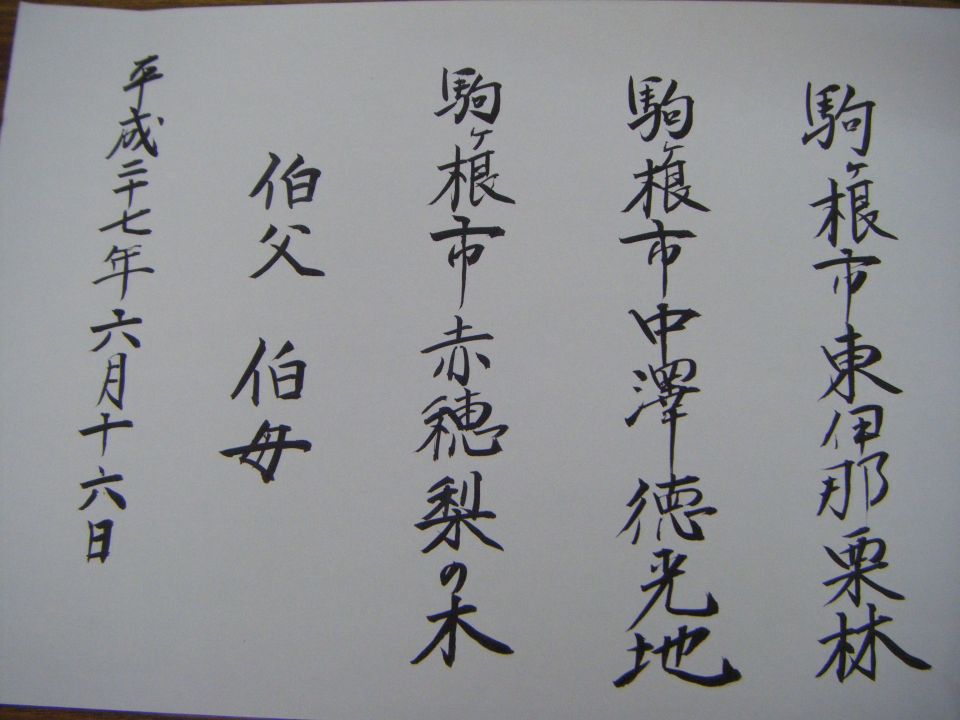 駒ヶ根市東伊那栗林
駒ヶ根市中澤徳光地
駒ヶ根市赤穂梨の木
伯父 伯母
平成二十七年六月十六日